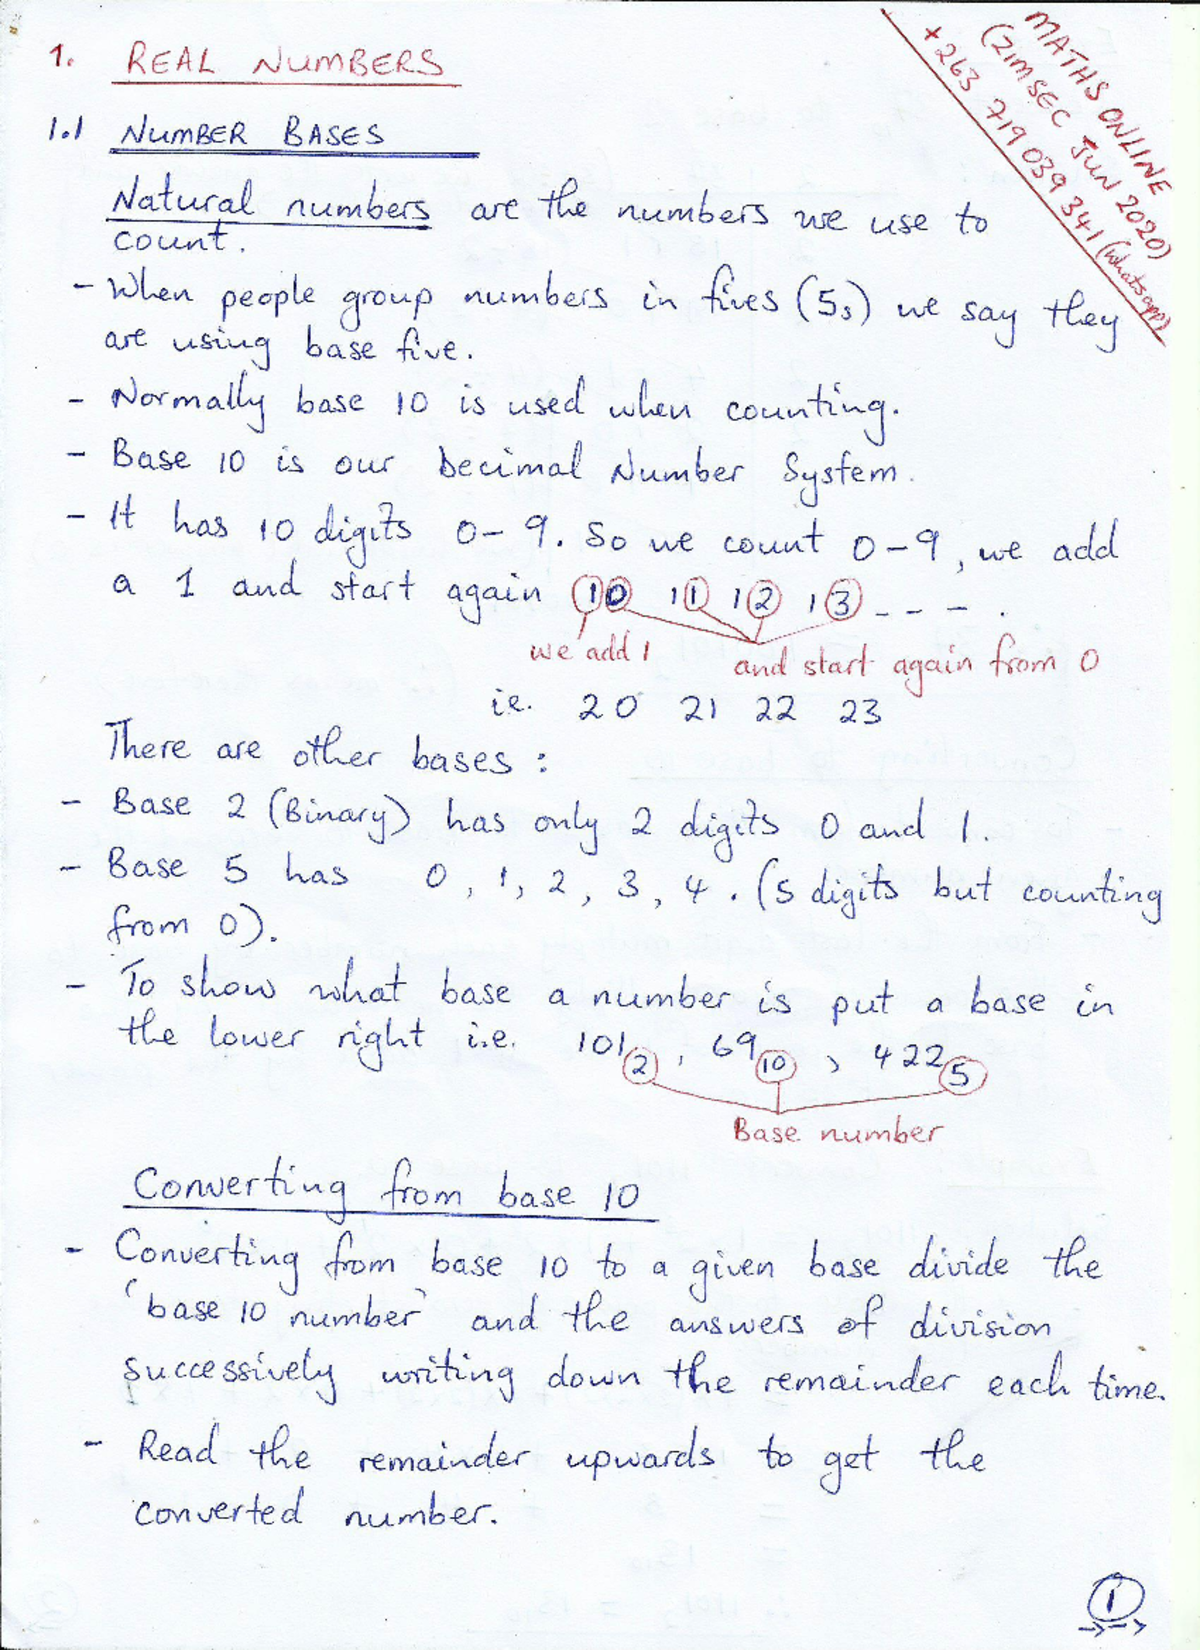 MATHS ONLINE
(ZIMSEC JUN 2020)
+263 719 039 341 (Whatsapp)
1. REAL NUMBERS
1.1 NUMBER BASES
Natural numbers are the numbers we use to
count.
- When people group numbers in fives (5s) we say they
are using base five.
- Normally base 10 is used when counting.
- Base 10 is our Decimal Number System.
- It has 10 digits 0-9. So we count 0-9, we add
a 1 and start again 10 11 12 13 - - - .
we add 1 and start again from 0
i.e. 20 21 22 23
There are other bases:
- Base 2 (Binary) has only 2 digits 0 and 1.
- Base 5 has 0, 1, 2, 3, 4. (5 digits but counting
from 0).
- To show what base a number is put a base in
the lower right i.e. 101₂, 69₁₀, 422₅
Base number
Converting from base 10
- Converting from base 10 to a given base divide the
'base 10 number' and the answers of division
successively writing down the remainder each time.
- Read the remainder upwards to get the
converted number.
1